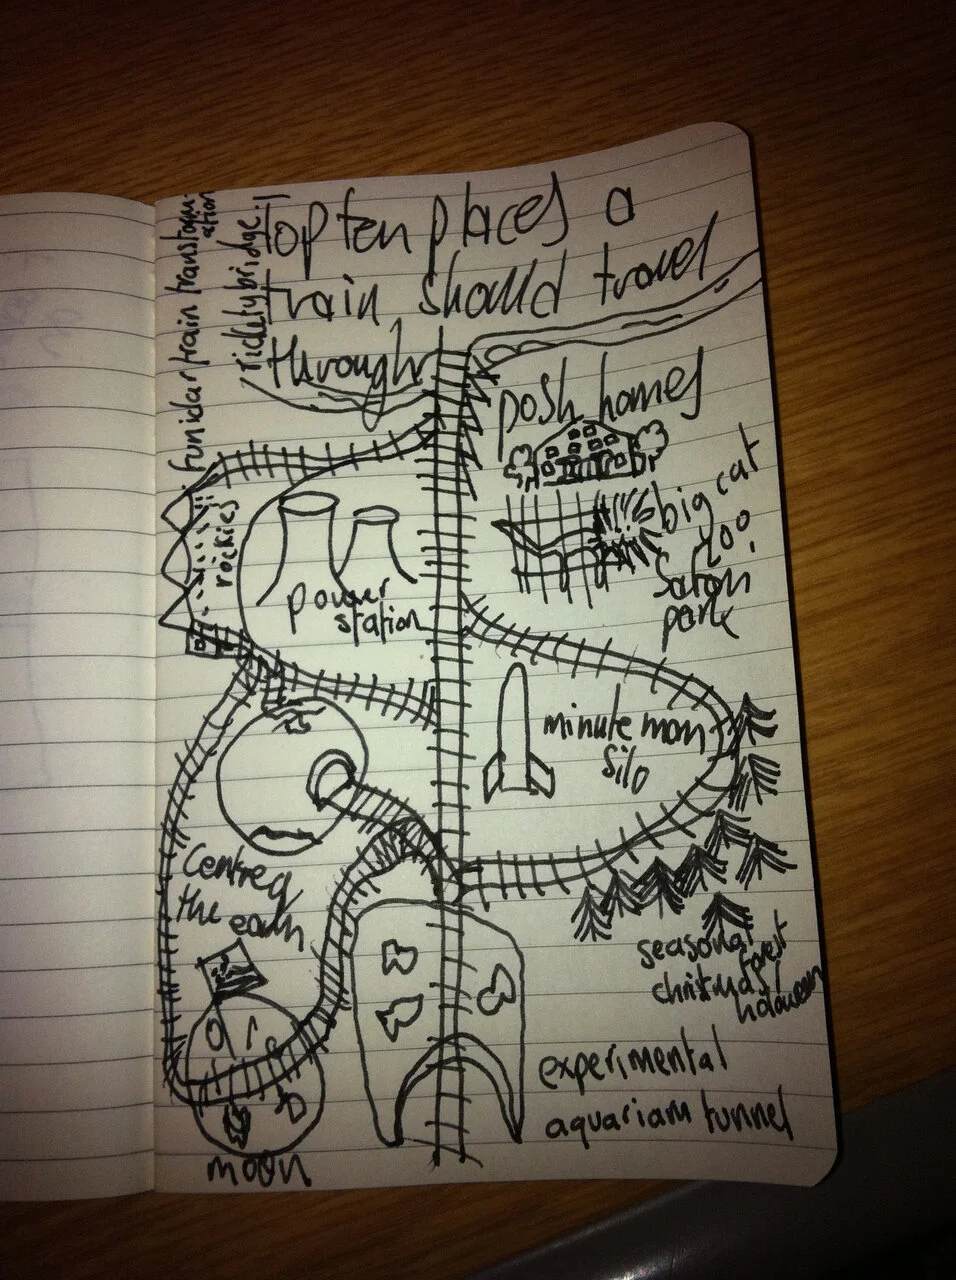 Top ten places a
train should travel
through
rickety bridge
funicular train
rockies
posh homes
big cat
zoo
Safari
park
power
station
minute man
Silo
Centre of
the earth
seasonal
forest
christmas/
haloween
experimental
aquariam tunnel
moon